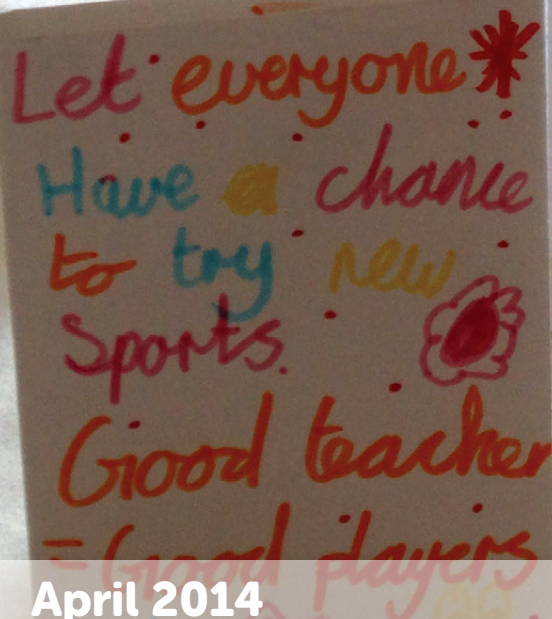 Let everyone
Have a chance
to try new
Sports.
Good teacher
= Good players
April 2014